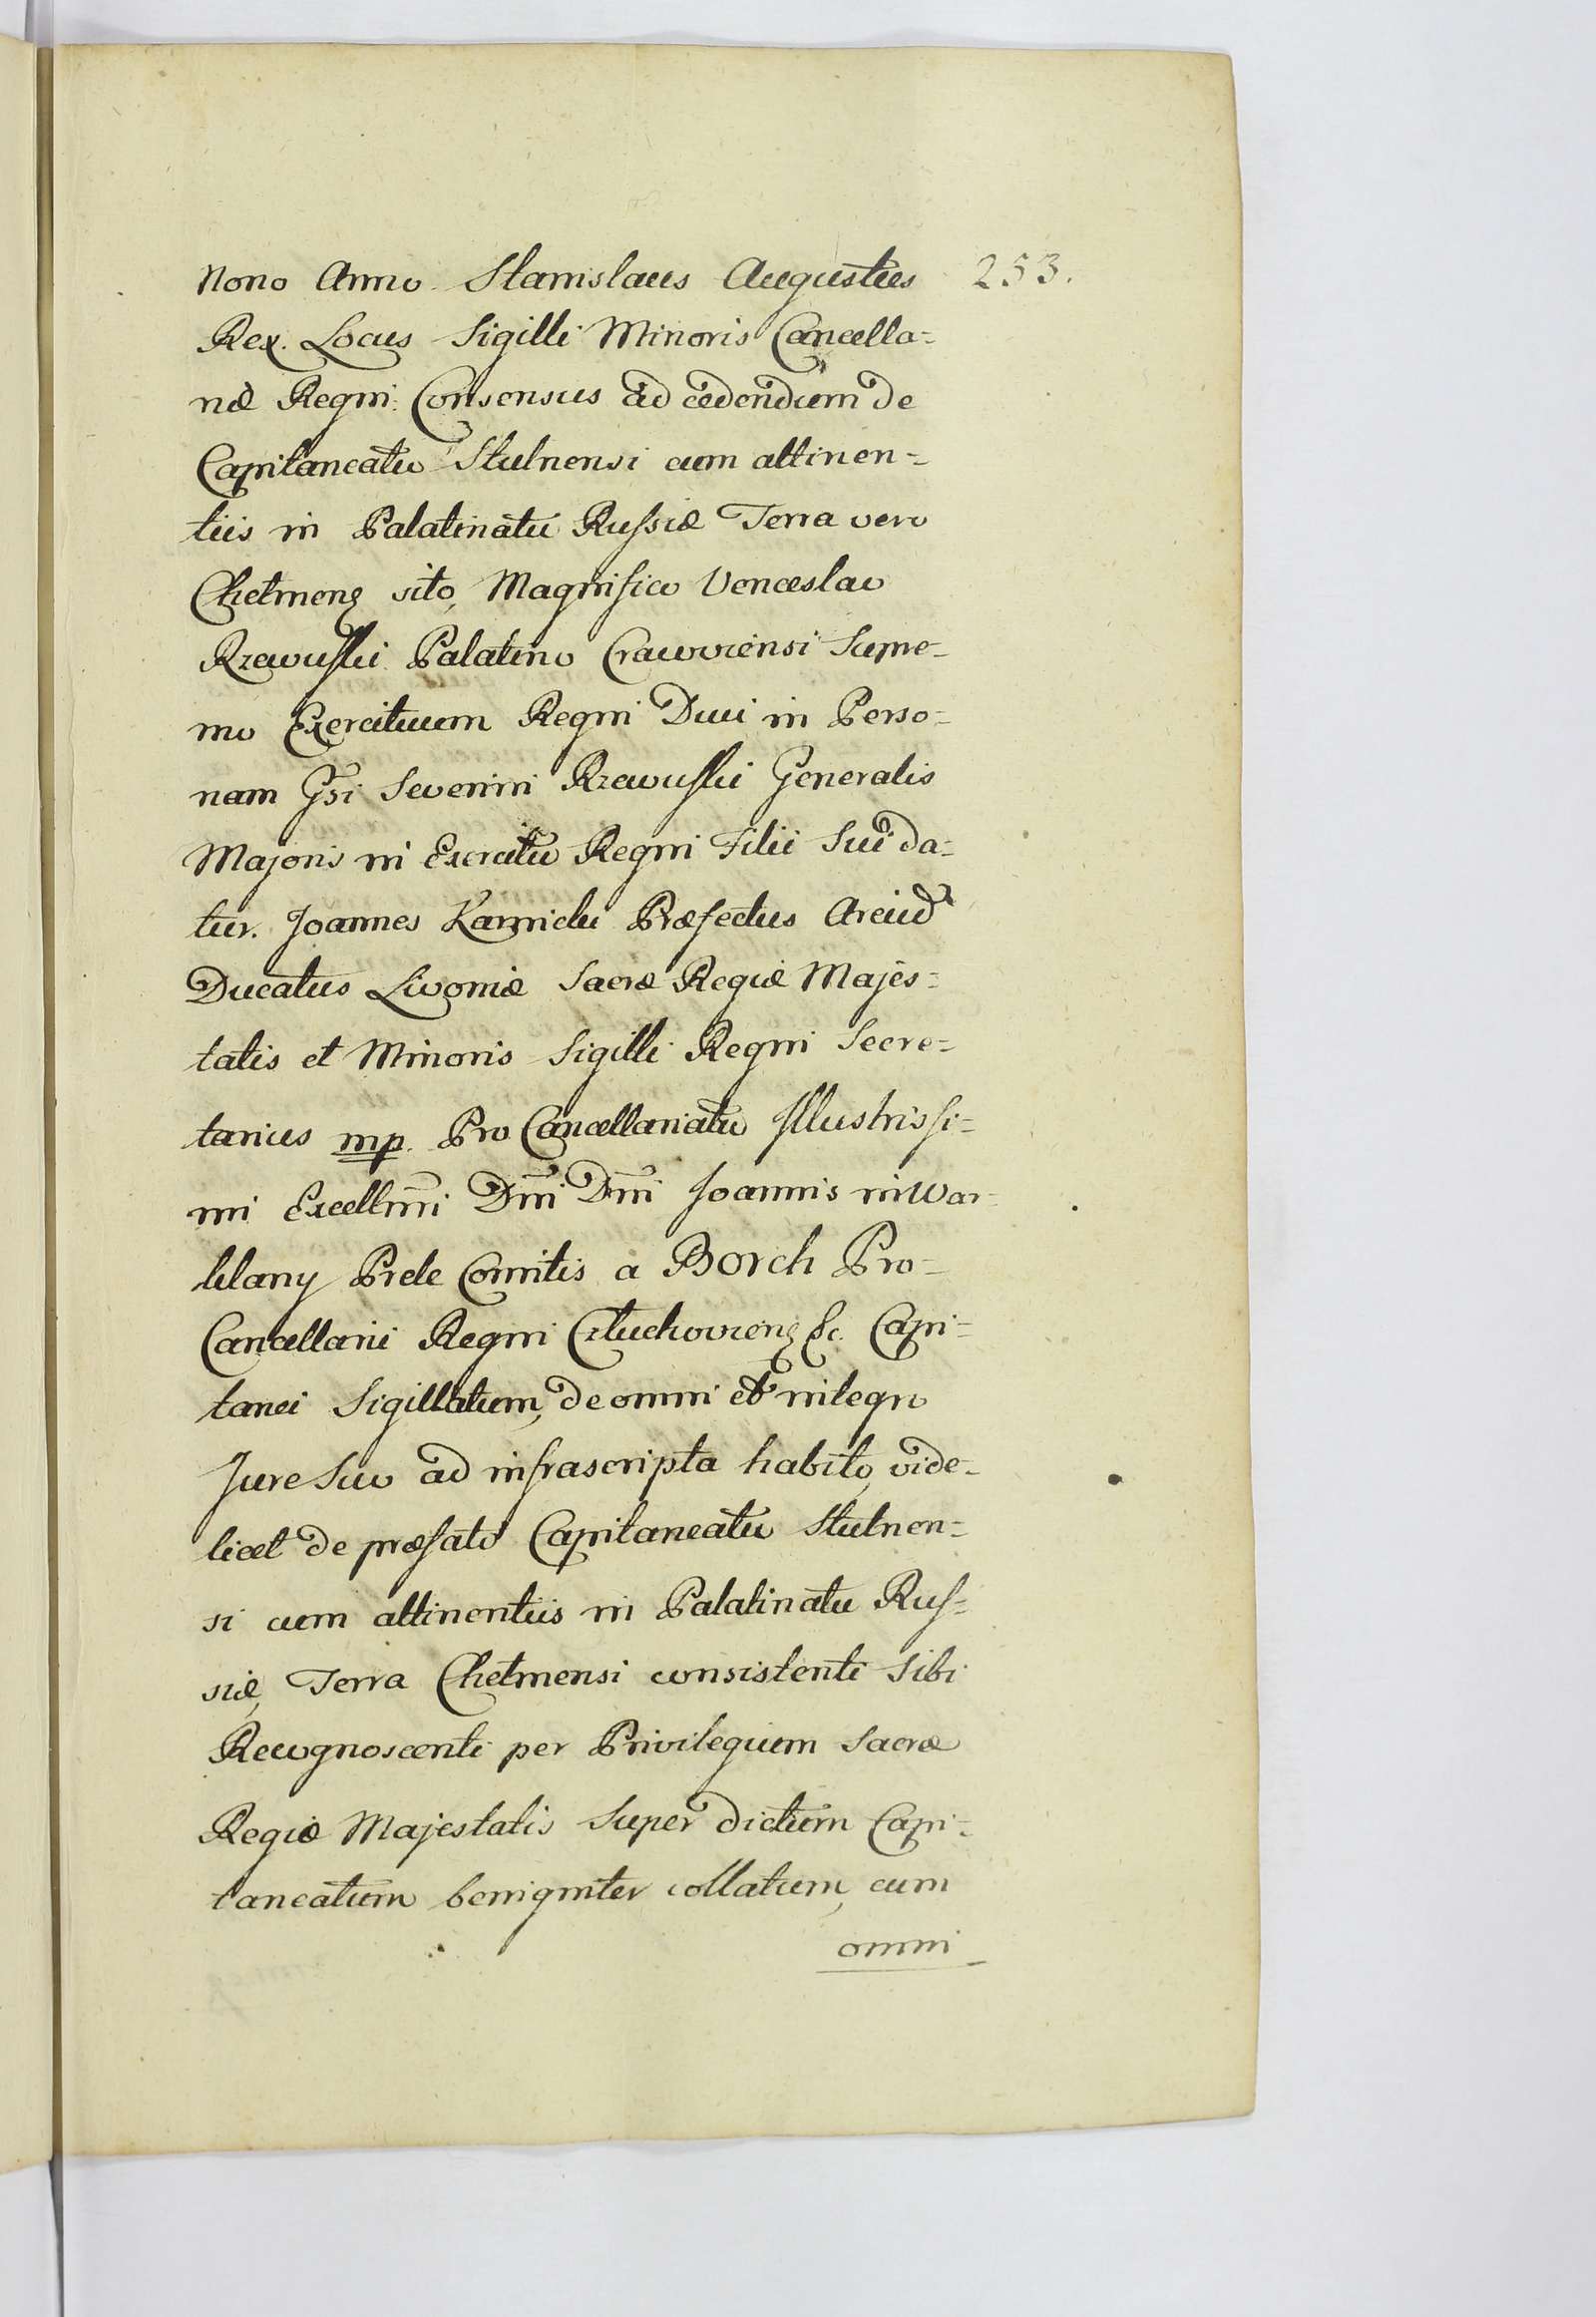 Nono Anno Stanislaus Augustus 253.
Rex. Locus Sigilli Minoris Cancella=
riæ Regni. Consensus ad cedendum de
Capitaneatu Stulnensi cum attinen=
tiis in Palatinatu Russiæ Terra vero
Chelmens sito, Magnifico Venceslao
Rzewuski Palatino Cracoviensi Supre=
mo Exercituum Regni Duci in Perso=
nam Gsi Severini Rzewuski Generalis
Majoris in Exercitu Regni Filii Sui da=
tur. Joannes Karnicki Præfectus
Ducatus Livoniæ Sacræ Regiæ Majes=
tatis et Minoris Sigilli Regni Secre=
tarius mp. Pro Cancellariatu Illustrissi=
mi Excellmi Dni Dni Joannis in War=
klany Prele Comitis a Borch Pro=
Cancellarii Regni Człuchoviens &c. Capi=
tanei Sigillatum, de omni et integro
Jure Suo ad infrascripta habito, vide=
licet de præfato Capitaneatu Stulnen=
si cum attinentiis in Palatinatu Rus=
siæ, Terra Chełmensi consistenti Sibi
Recognoscenti per Privilegium Sacræ
Regiæ Majestatis Super dictum Capi=
taneatum benigniter collatum, cum
omni